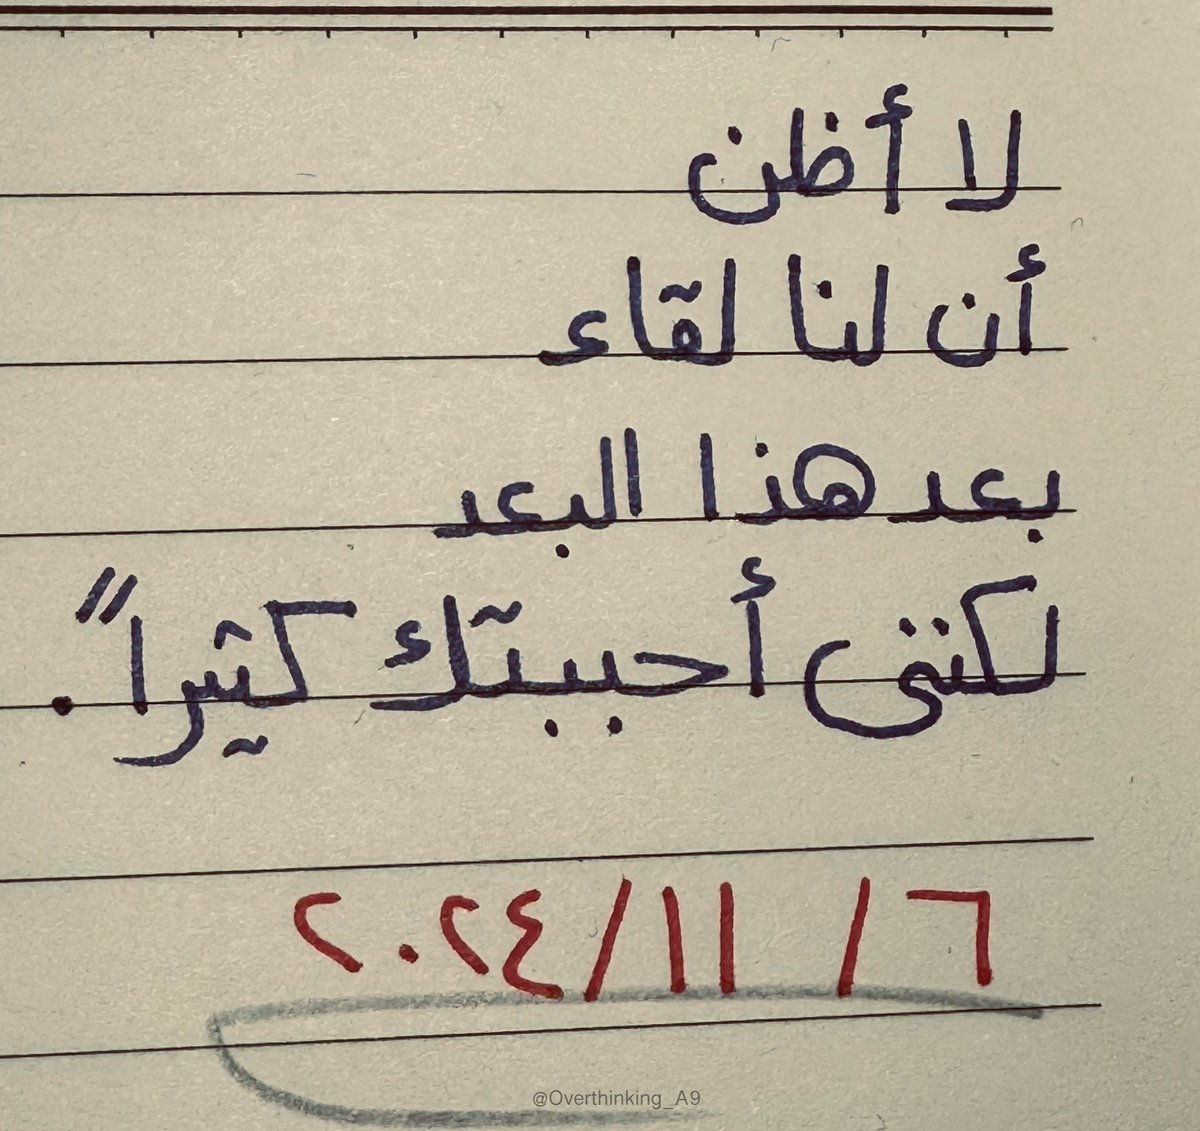 لا أظن
أن لنا لقاء
بعد هذا البعد
لكنني أحببتك كثيراً.
٦/ ١١/ ٢٠٢٤
@Overthinking_A9